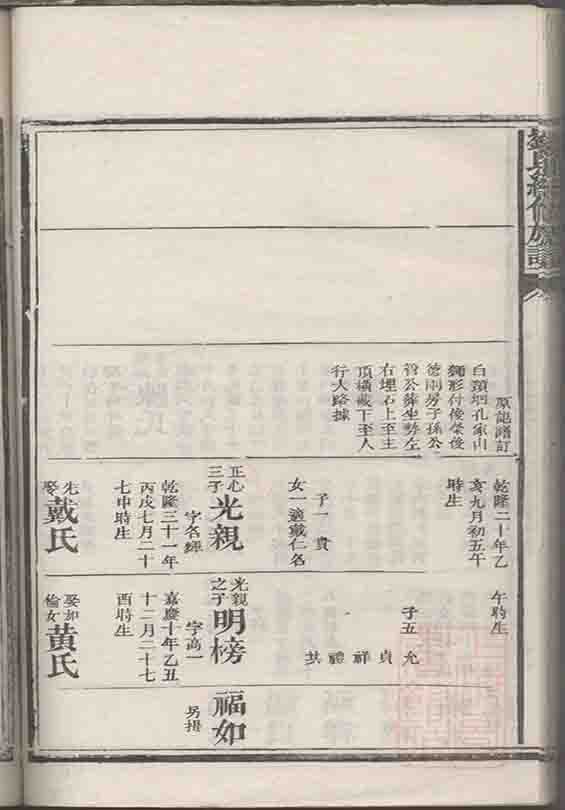 續修族譜
原記譜訂
白頭坦孔家山
獅形付俊榮後
德兩房子孫公
管公葬坐勢左
右埋石上至主
頂橫截下至人
行大路據
乾隆二十年乙
亥九月初五午
時生
子一 貴
女一適戴仁名
正心
三子
光親
字名經
乾隆三十一年
丙戌七月二十
七申時生
先娶
戴氏
午時生
子五
允
貞
祥
禮
其
光親
之子
明榜
字高一
嘉慶十年乙丑
十二月二十七
酉時生
娶如
倫女
黃氏
福如
另排